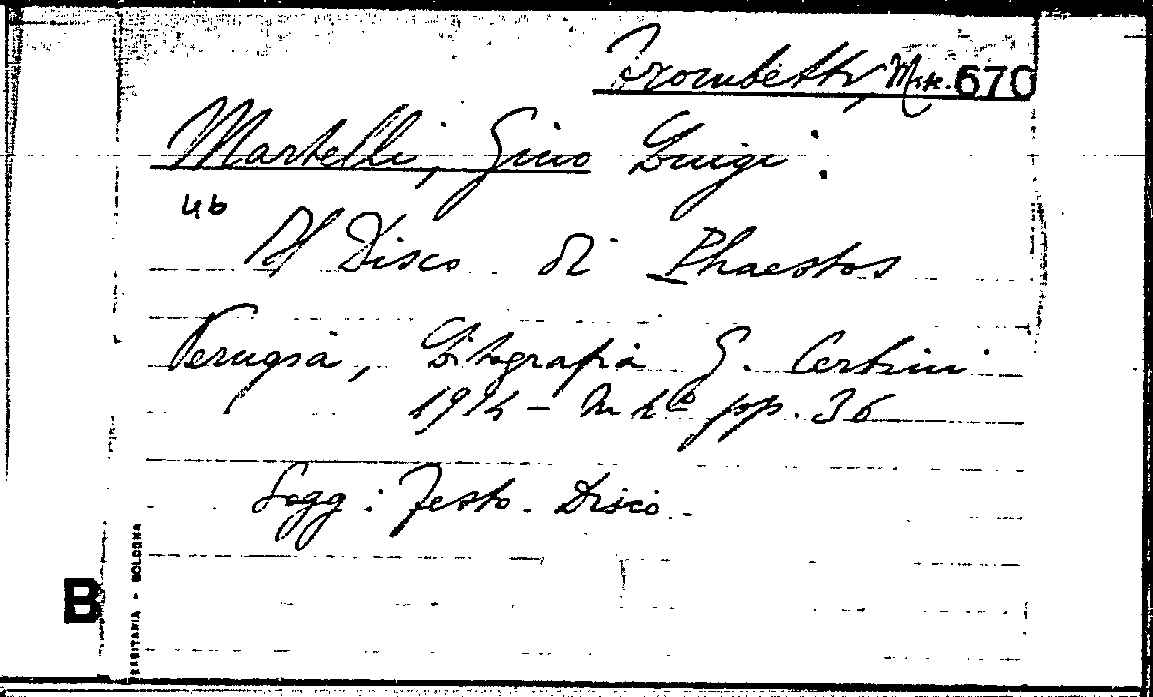 Trombetti, Misc. 670
Martelli, Gino Luigi:
46
Il Disco di Phaestos
Perugia, Litografia G.
1914 - In 4° pp. 36
Sogg: Festo - Disco -
B
SANITARIA - BOLOGNA